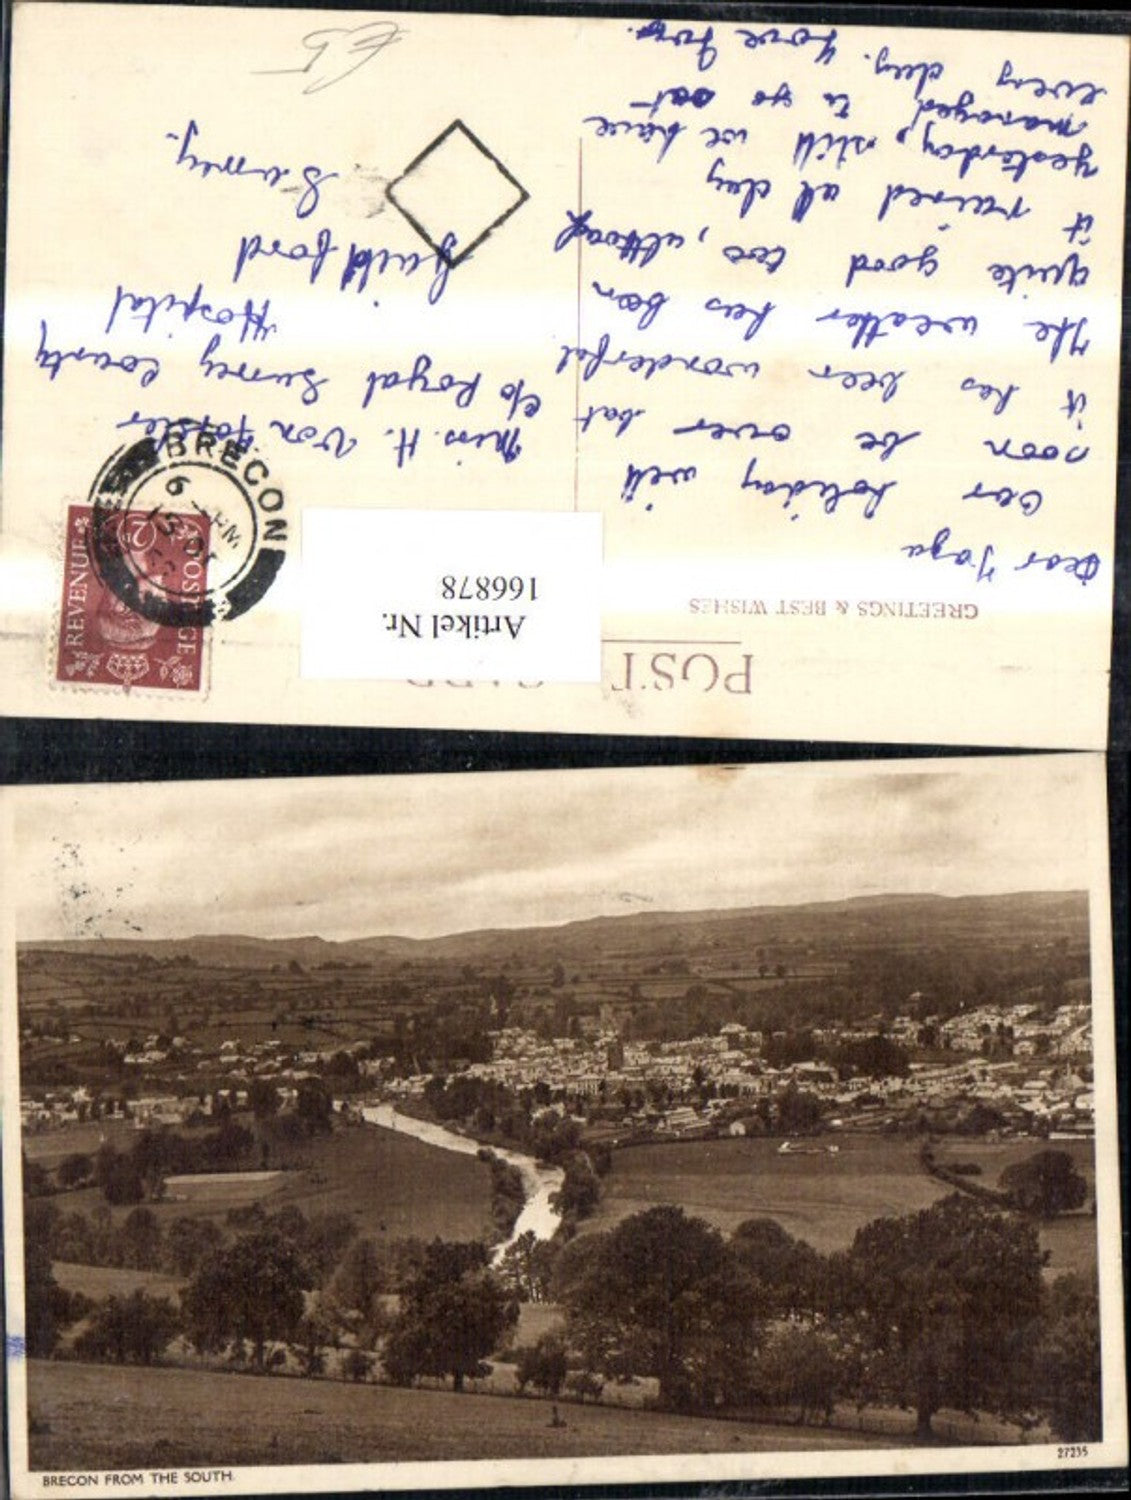 POST
GREETINGS & BEST WISHES
Artikel Nr.
166878
Dear
Our holiday will
soon be over but
it has been wonderful
The weather has been
quite good too, although
it rained all day
yesterday, still we have
managed to go out
every day. Love
REVENUE
POSTAGE
2
BRECON
Miss. H. Von
c/o Royal Surrey County
Hospital
Guildford
Surrey.
£5
BRECON FROM THE SOUTH.
27235